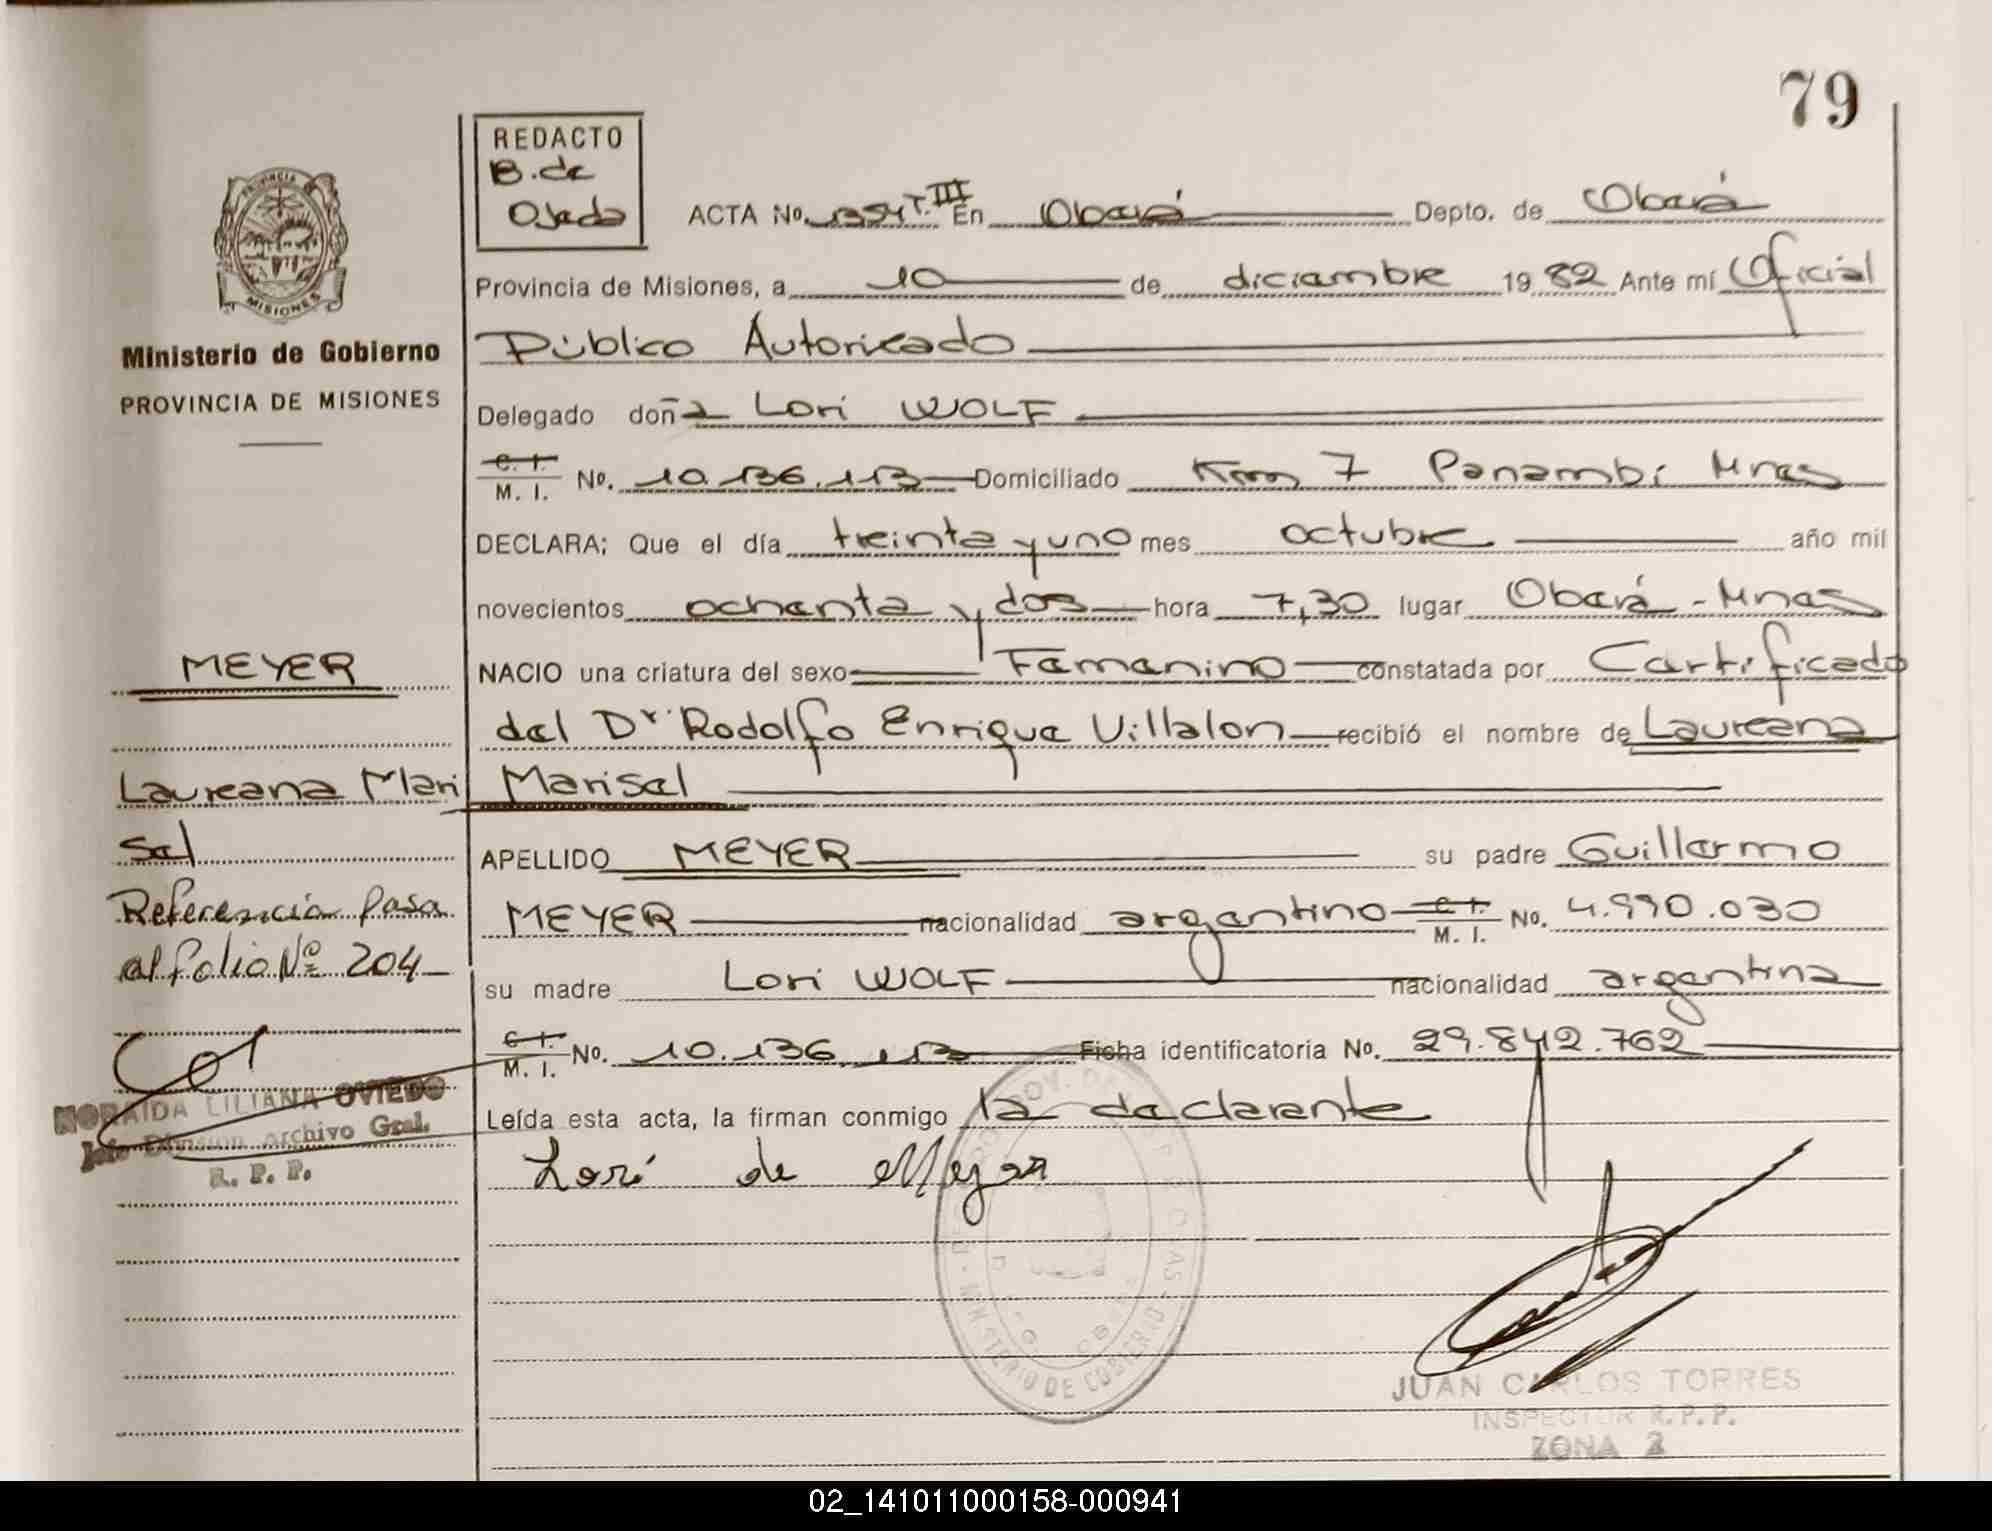 79
REDACTO
B. de
Ojeda
ACTA No. 1354 T. III En Oberá Depto. de Oberá
Provincia de Misiones, a 10 de diciembre 1982 Ante mí Oficial
Público Autorizado
Delegado doña Lori WOLF
C. I.
M. I. No. 10.136.113 Domiciliado Km 7 Panambí Mnes
DECLARA; Que el día treinta y uno mes octubre año mil
novecientos ochenta y dos hora 7,30 lugar Oberá - Mnes
NACIO una criatura del sexo Femenino constatada por Certificado
del Dr. Rodolfo Enrique Villalon recibió el nombre de Laureana
Marisel
APELLIDO MEYER su padre Guillermo
MEYER nacionalidad argentino C. I.
M. I. No. 4.990.030
su madre Lori WOLF nacionalidad argentina
C. I.
M. I. No. 10.136.113 Ficha identificatoria No. 29.842.762
Leída esta acta, la firman conmigo la declarante
Lori de Meyer
PROVINCIA
MISIONES
Ministerio de Gobierno
PROVINCIA DE MISIONES
MEYER
Laureana Mari
sel
Referencia Pasa
al folio Nº 204
NORAIDA LILIANA OVIEDO
Jefe División Archivo Gral.
R. P. P.
MINISTERIO DE GOBIERNO
JUAN CARLOS TORRES
INSPECTOR R.P.P.
ZONA 2
02_141011000158-000941